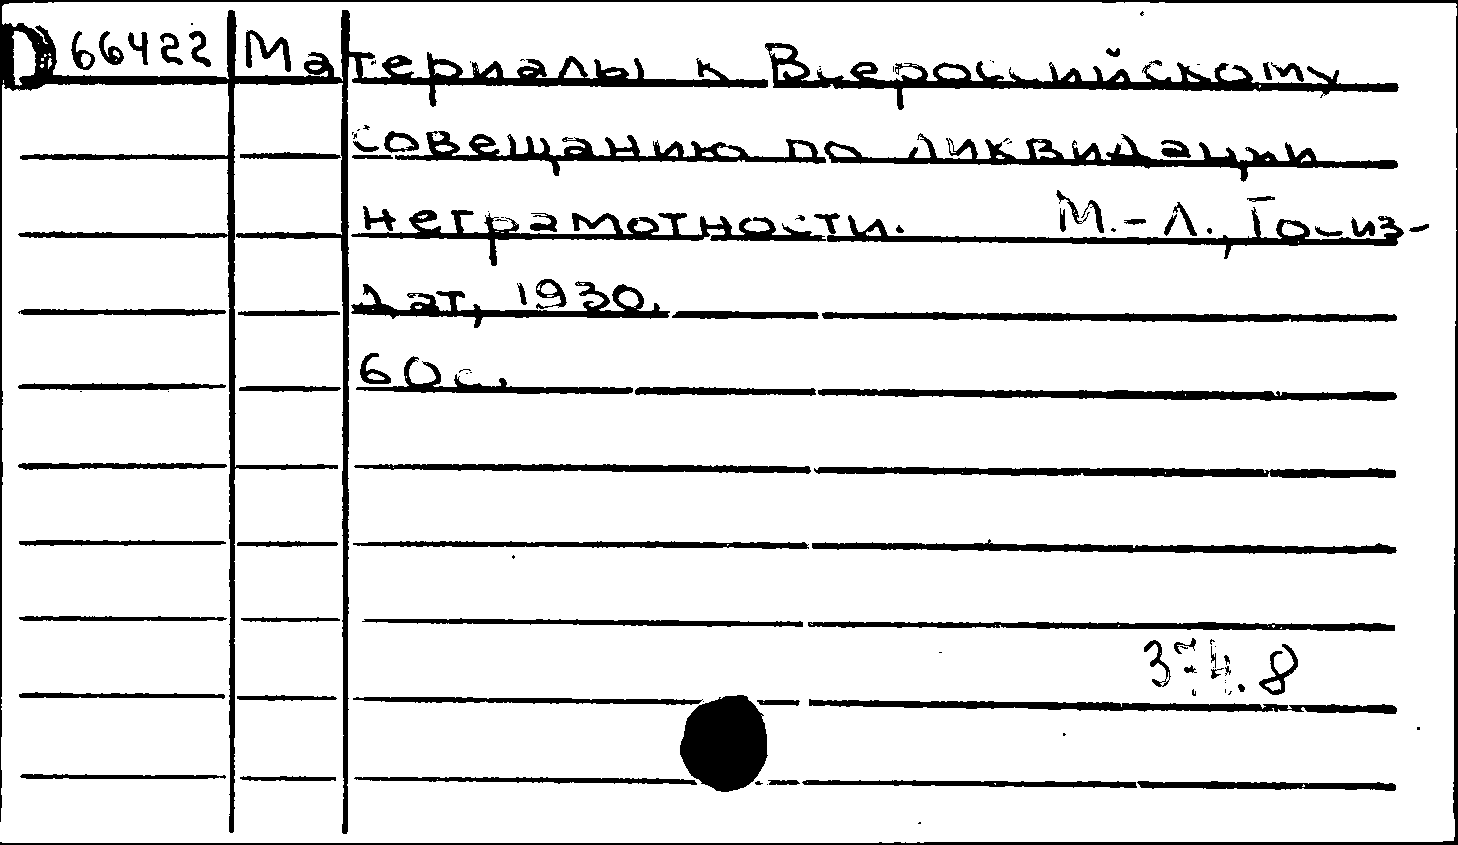 D 66422 Материалы к Всероссийскому
совещанию по ликвидации
неграмотности. М.-Л., Госиз-
дат, 1930.
60 с.
374.8